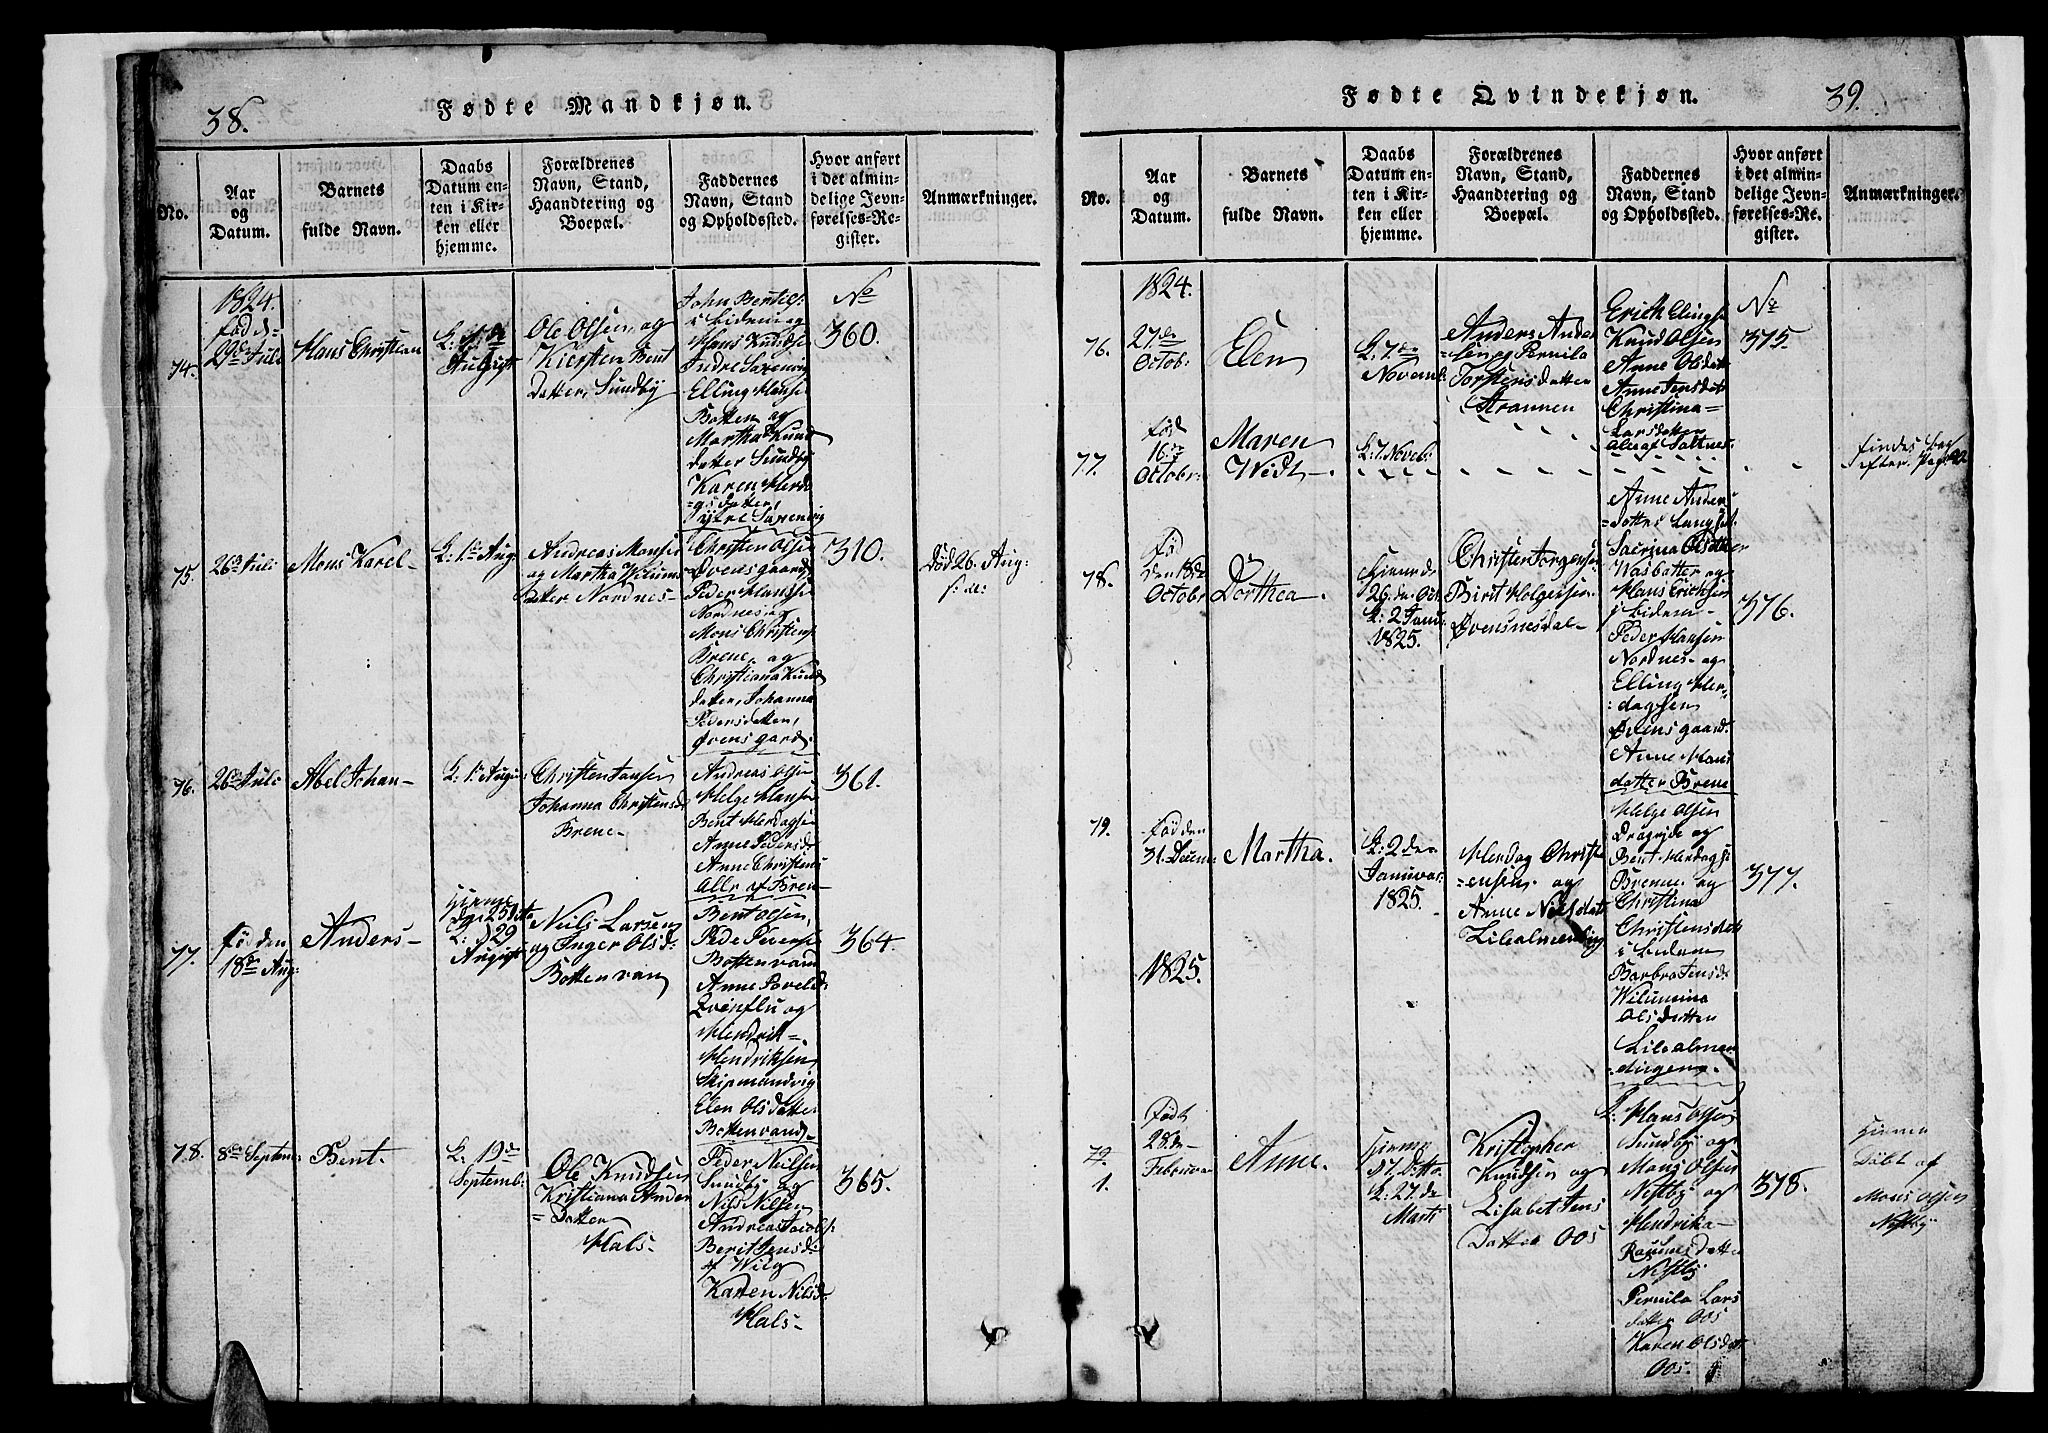 38.
Fødte Mandkjøn.
No.
Aar og Datum.
Barnets fulde Navn.
Daabs Datum enten i Kirken eller hjemme.
Forældrenes Navn, Stand, Haandtering og Boepæl.
Faddernes Navn, Stand og Opholdssted.
Hvor anført i det almindelige Jevnførelses-Register.
Anmærkninger.
74.
1824.
fød d=
29de Juli
Hans Christian
K: 1de
August
Ole Olsen, og
Kiersten Bent
Datter, Sundby
John Bentes:
ibidem og
Hans Knuds:
Andre Saxenvig
Elling Hanse
Botten og
Martha Knud
datter Sundby
Karen Herda
=gsdatter,
ytre Saxenvig
No
360.
75.
26de Juli
Mons Karel-
K: 1de Aug:
Andreas Monsen
og Martha Wilums
datter Nordnes-
Christen Olsen
Øvensgaard,
Peder Hanse
Nordnes, og
Mons Christens
Brene, og
Christiana Knud
datter, Johanna
Pedersdatter,
Øvensgard.
310.
Død 26. Aug:
s: a:
76.
26de Juli
Abel Johan-
K: 1de Augu:
Christen Jansen
Johanna Christensd
Brene-
Andreas Olsen
Helge Hansen
Bent Herdagsen
Anne Pedersd:
Anne Christens
Alle af Bren-
361.
77.
fød den
18de Aug:
Anders-
Hjemme
25 dito
K: 29
August
Niels Larsen
og Inger Olsd:
Bottenvan
Bent Olsen,
Pede Peverse
Bottenvand
Anne Poveld:
Qvenflu og
Hendrik=
Hendriksen
Skipmandvig
Elen Olsdatte:
Bottenvand-
364.
78.
8de Septem:
Bent.
K. 19de
Septemb:
Ole Knudsen
Kristiana Ander
=Datter
Hals-
Peder Nielsen
Sundby og
Nils Nilsen
Andreas Jacobs:
Berit Jensd:
af Wilg
Katten Nilsd:
Hals-
365.
39.
Fødte Qvindekjøn.
No.
Aar og Datum.
Barnets fulde Navn.
Daabs Datum enten i Kirken eller hjemme.
Forældrenes Navn, Stand, Haandtering og Boepæl.
Faddernes Navn, Stand og Opholdssted.
Hvor anført i det almindelige Jevnførelses-Register.
Anmærkninger.
76.
1824.
27de
Octob:
Elen
K: 7de
Novemb:
Anders Ander
=sen og Pernila
Torstensdatter
Strannen
Erich Elings
Knud Olsen
Anne Olsdatt
Anne Jensdatt
Christina=
Larsdatter
Alle af Saltnes-
No
375.
77.
fød
16de
Octobr:
Maren
Widt-
K: 7 Novb:
findes bag
efter Pag: 92
78.
fød
den 18de
Octobr
Dorthea.
Hjemedt
26. de Oct.
K: 2 Janu:
1825.
Christen Jorgense
Birit Holgersen.
Øvensnesdal-
Anne Anders
=dotter Langset
Sacrina Olsdatter
Wasbatter og
Hans Erichsen
ibidem-
Peder Hansen
Nordnes- og
Elling Her=
:dagsen
Øvensgaard.
Anne Hans
datter Brene
376.
79.
fød den
31. Decem:
Martha.
K: 2de-
Januvar:
1825.
Herdag Christ
=ensen. og
Anne Nielsdat:
Lilealmening
Helge Olsen
Dragejde og
Bent Herdags:
Brenne. og
Christina
Christensdat:
ibidem
Barbra Jensd:
Wilumina
Olsdatter
Lilealmen
=dingen.
377.
79.
1.
1825.
Født
28de-
Februva:
Anne.
hjemme
17. Ditto
K: 27. de
Marti
Kristopher
Knudsen og
Lisabet Jens
Datter Oos
Hans Olsen
Sundby og
Mons Olsen
Nestby og
Hendrika-
Rasmusdatter
Nestby
Pernila Lars
datter Oos
Karen Olsdat
Oos.
378.
Hiemme
Døbt af
Mons Olsen
Nestby